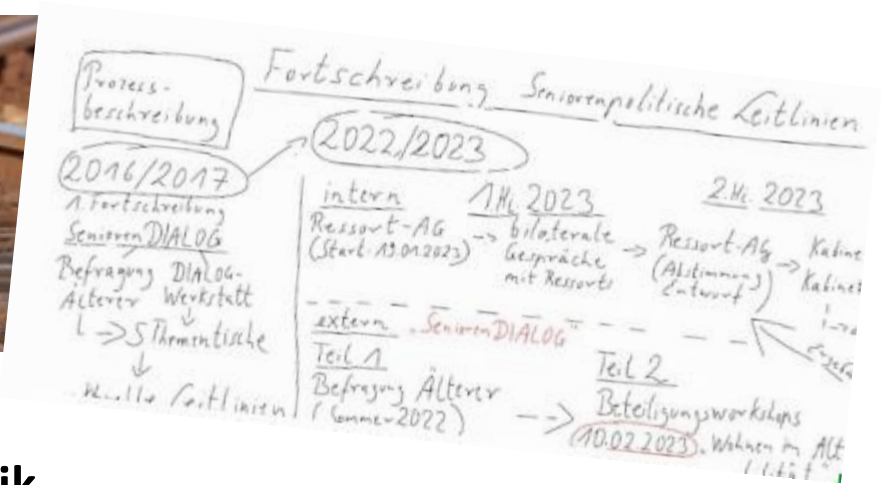 Fortschreibung Seniorenpolitische Leitlinien
Prozess-
beschreibung
2016/2017
1. Fortschreibung
SeniorenDIALOG
Befragung DIALOG-
Älterer Werkstatt
5 Thementische
Leitlinien
2022/2023
intern
Ressort-AG
(Start: 19.01.2023)
1.Hj. 2023
bilaterale
Gespräche
mit Ressorts
2.Hj. 2023
Ressort-AG
(Abstimmung
Entwurf)
Kabine
Kabinet
extern "SeniorenDIALOG"
Teil 1
Befragung Älterer
(Sommer 2022)
Teil 2
Beteiligungsworkshops
10.02.2023 "Wohnen im Alt
ik